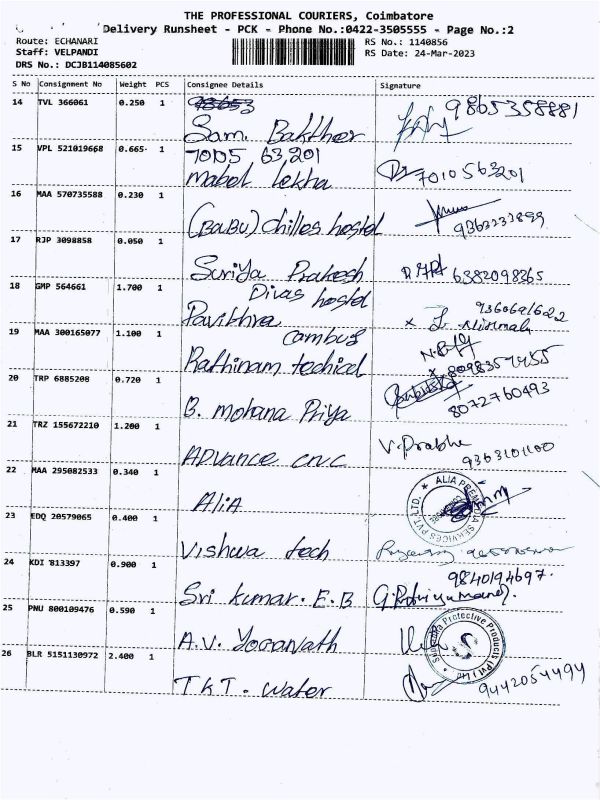 THE PROFESSIONAL COURIERS, Coimbatore
Delivery Runsheet - PCK - Phone No.:0422-3505555 - Page No.:2
Route: ECHANARI RS No.: 1140856
Staff: VELPANDI RS Date: 24-Mar-2023
DRS No.: DCJB114085602
S No Consignment No Weight PCS Consignee Details Signature
14 TVL 366061 0.250 1 98653 9865358881
Sam. Bakthar
15 VPL 521019668 0.665 1 70105 63,201 7010563201
Mabel Lekha
16 MAA 570735588 0.230 1 (BABU) chilles hostel 9363233899
17 RJP 3098858 0.050 1 Suriya Prakesh 6382098365
18 GMP 564661 1.700 1 Divas hostel 9360691622
Pavithra x
19 MAA 300165077 1.100 1 Cambus
Rathinam techical x 8098359455
20 TRP 6885208 0.720 1 B. mohana Priya 8072760493
21 TRZ 155672210 1.200 1 ADVance cnc V. Prabha 9363101100
22 MAA 295082533 0.340 1 AliA ALIA PREMEDIA SERVICES PVT. LTD.
23 EDQ 20579065 0.400 1 Vishwa tech
24 KDI 813397 0.900 1 Sri kumar. E.B 9840194697.
25 PNU 800109476 0.590 1 A.V. Yoganath Protective Products (Pvt) Ltd
26 BLR 5151130972 2.400 1 TKT. Water 9442054494